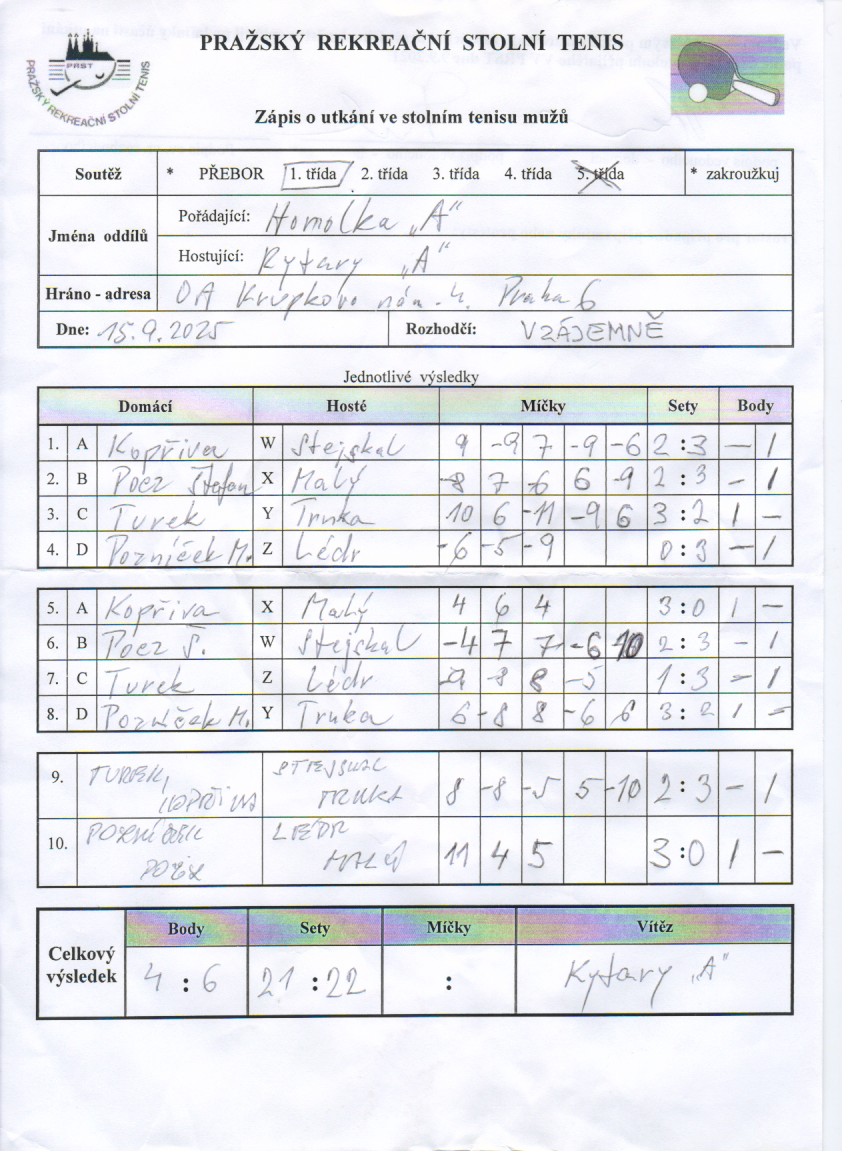 PRAŽSKÝ REKREAČNÍ STOLNÍ TENIS
PRST
PRAŽSKÝ REKREAČNÍ STOLNÍ TENIS
Zápis o utkání ve stolním tenisu mužů
Soutěž * PŘEBOR 1. třída 2. třída 3. třída 4. třída 5. třída * zakroužkuj
Jména oddílů
Pořádající: Homolka „A“
Hostující: Kytary „A“
Hráno - adresa OA Krupkovo nám. 4. Praha 6
Dne: 15.9.2025 Rozhodčí: VZÁJEMNĚ
Jednotlivé výsledky
Domácí Hosté Míčky Sety Body
1. A Kopřiva W Stejskal 9 -9 7 -9 -6 2:3 – 1
2. B Pocz Štefan X Malý -8 7 -6 6 -9 2:3 – 1
3. C Turek Y Trnka 10 6 -11 -9 6 3:2 1 –
4. D Pozníček M. Z Lédr -6 -5 -9 0:3 – 1
5. A Kopřiva X Malý 4 6 4 3:0 1 –
6. B Pocz Š. W Stejskal -4 7 7 -6 -10 2:3 – 1
7. C Turek Z Lédr -9 -8 8 -5 1:3 – 1
8. D Pozníček M. Y Trnka 6 -8 8 -6 6 3:2 1 –
9. TUREK, STEJSKAL
KOPŘIVA TRNKA 8 -8 -5 5 -10 2:3 – 1
10. POZNÍČEK LÉDR
MALÝ 11 4 5 3:0 1 –
Body Sety Míčky Vítěz
Celkový výsledek 4:6 21:22 : Kytary „A“